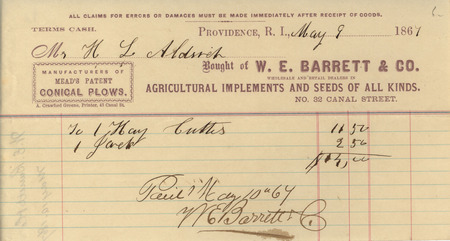 ALL CLAIMS FOR ERRORS OR DAMAGES MUST BE MADE IMMEDIATELY AFTER RECEIPT OF GOODS.
TERMS CASH. PROVIDENCE, R. I., May 9 1867
Mr H L Aldrich
Bought of W. E. BARRETT & CO.
MANUFACTURERS OF
MEAD'S PATENT
CONICAL PLOWS.
WHOLESALE AND RETAIL DEALERS IN
AGRICULTURAL IMPLEMENTS AND SEEDS OF ALL KINDS.
A. Crawford Greene, Printer, 45 Canal St.
NO. 32 CANAL STREET.
To 1 Hay Cutter 11 50
1 2 50
$14,00
Rec'd May 10th 67
W E Barrett & Co